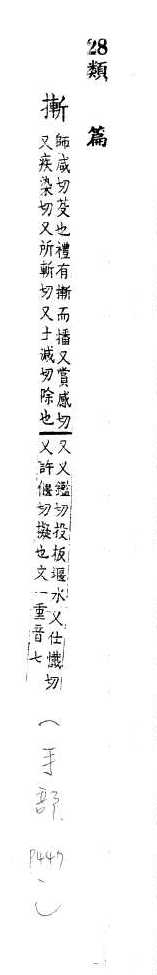 28類
篇
摲
師咸切芟也禮有摲而播又賞感切
又疾染切又所斬切又士減切除也
又乂鑑切投板堰水乂仕懺切
乂許偃切擬也文一重音七
(手部 P447)